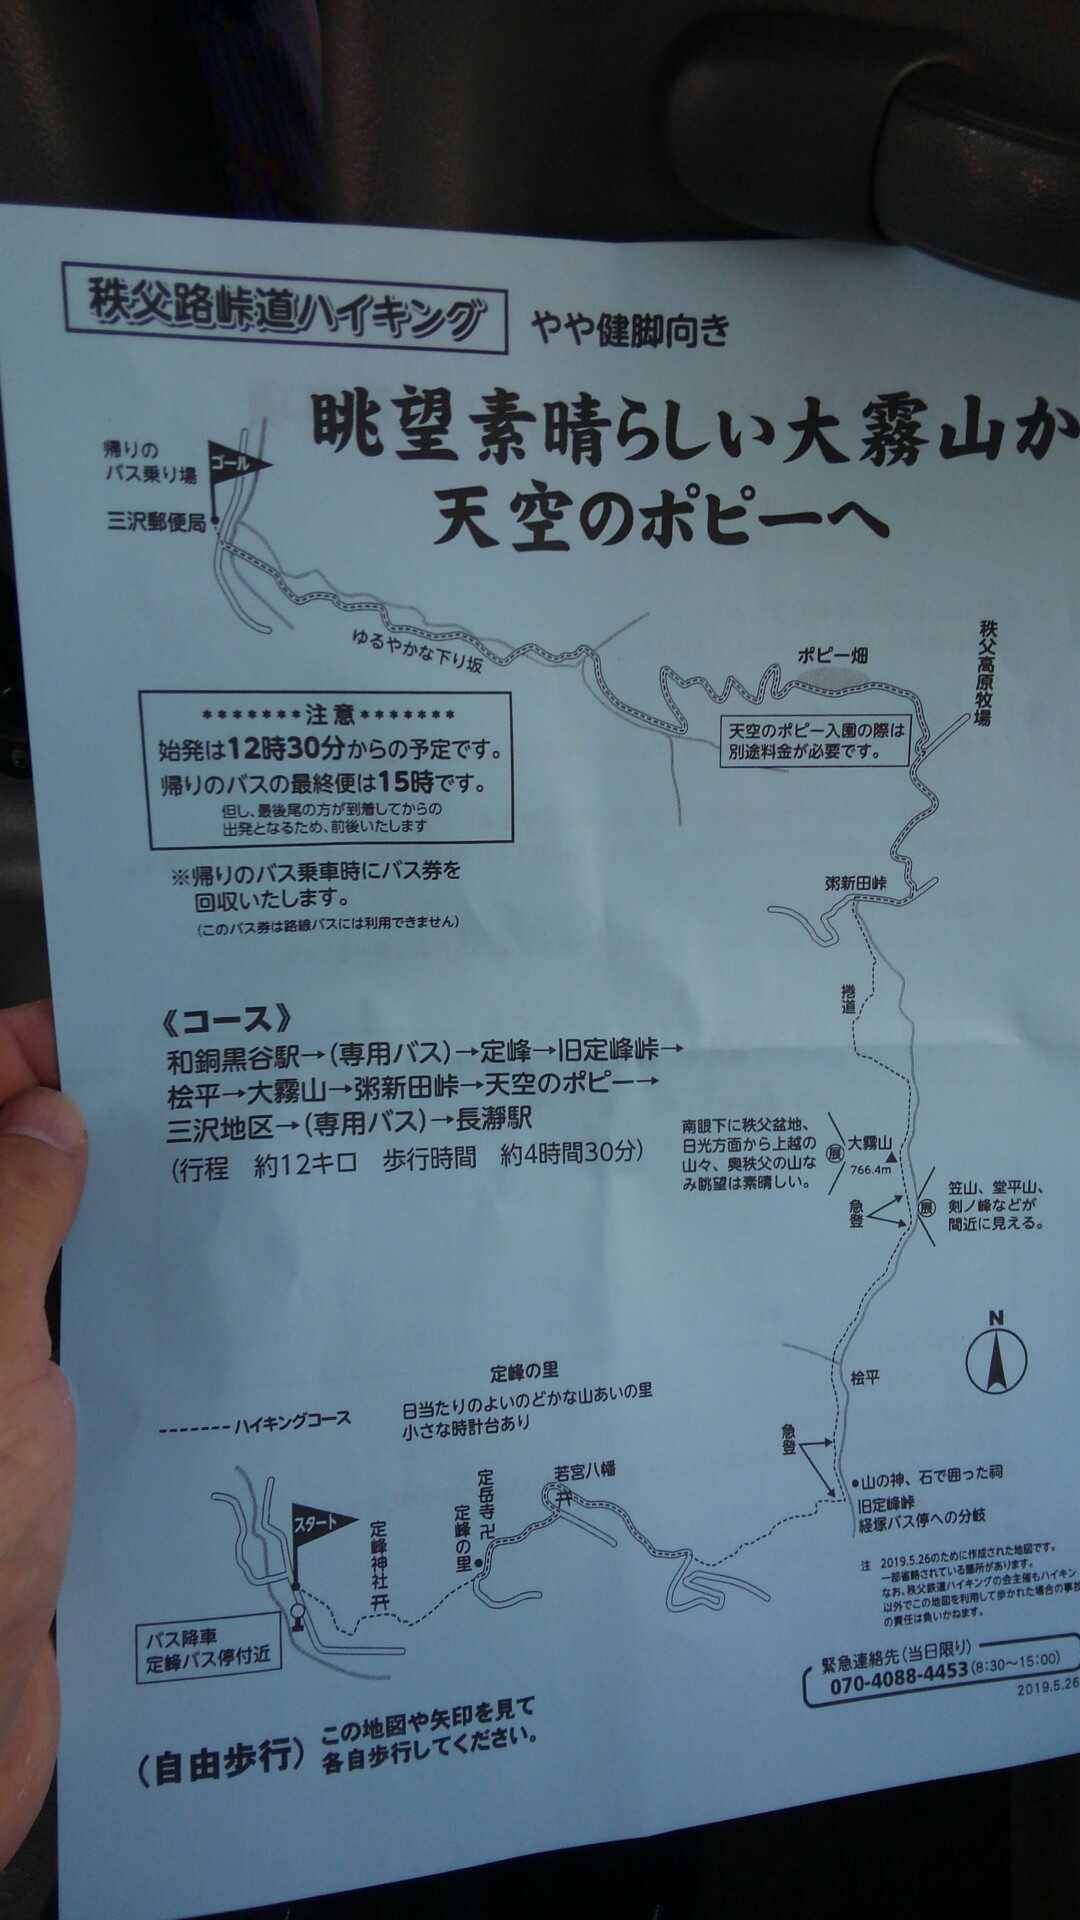 秩父路峠道ハイキング
やや健脚向き
眺望素晴らしい大霧山か
天空のポピーへ
帰りの
バス乗り場
ゴール
三沢郵便局
ゆるやかな下り坂
ポピー畑
秩父高原牧場
天空のポピー入園の際は
別途料金が必要です。
*******注意*******
始発は12時30分からの予定です。
帰りのバスの最終便は15時です。
但し、最後尾の方が到着してからの
出発となるため、前後いたします
※帰りのバス乗車時にバス券を
回収いたします。
(このバス券は路線バスには利用できません)
粥新田峠
捲道
《コース》
和銅黒谷駅→(専用バス)→定峰→旧定峰峠→
桧平→大霧山→粥新田峠→天空のポピー→
三沢地区→(専用バス)→長瀞駅
(行程 約12キロ 歩行時間 約4時間30分)
南眼下に秩父盆地、
日光方面から上越の
山々、奥秩父の山な
み眺望は素晴しい。
展
大霧山
766.4m
急登
展
笠山、堂平山、
剣ノ峰などが
間近に見える。
N
桧平
急登
山の神、石で囲った祠
旧定峰峠
経塚バス停への分岐
定峰の里
日当たりのよいのどかな山あいの里
小さな時計台あり
ハイキングコース
若宮八幡
定岳寺
定峰の里
定峰神社
スタート
バス降車
定峰バス停付近
注 2019.5.26のために作成された地図です。
一部省略されている箇所があります。
なお、秩父鉄道ハイキングの会主催もハイキン
以外でこの地図を利用して歩かれた場合の事故
の責任は負いかねます。
緊急連絡先(当日限り)
070-4088-4453(8:30〜15:00)
2019.5.26
(自由歩行)
この地図や矢印を見て
各自歩行してください。